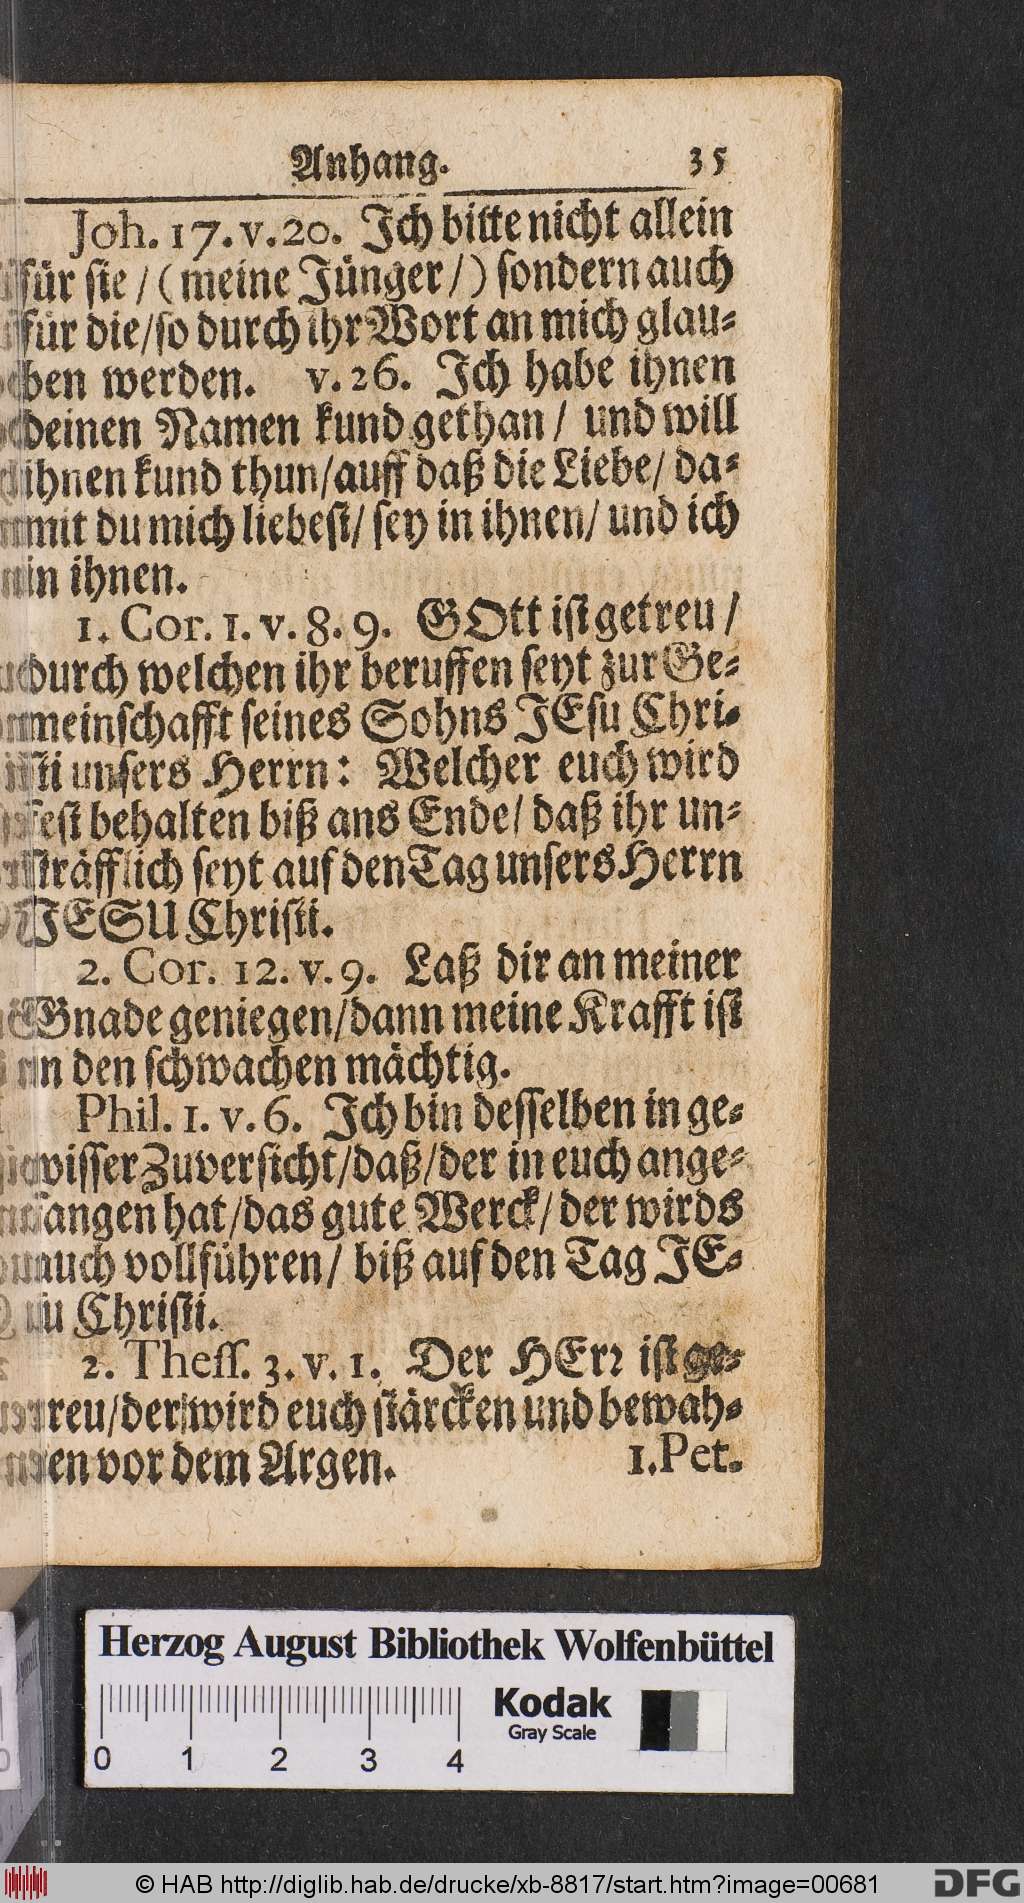 Anhang. 35
Joh. 17. v. 20. Ich bitte nicht allein
für sie / (meine Jünger /) sondern auch
für die/so durch ihr Wort an mich glau-
ben werden. v. 26. Ich habe ihnen
deinen Namen kund gethan / und will
ihnen kund thun/auff daß die Liebe/ da-
mit du mich liebest/ sey in ihnen/ und ich
in ihnen.
1. Cor. 1. v. 8. 9. GOtt ist getreu /
durch welchen ihr beruffen seyt zur Ge-
meinschafft seines Sohns JEsu Chri-
sti unsers Herrn: Welcher euch wird
fest behalten biß ans Ende/ daß ihr un-
sträfflich seyt auf den Tag unsers Herrn
JESU Christi.
2. Cor. 12. v. 9. Laß dir an meiner
Gnade geniegen/dann meine Krafft ist
in den schwachen mächtig.
Phil. 1. v. 6. Ich bin desselben in ge-
wisser Zuversicht/daß/der in euch ange-
fangen hat/das gute Werck/ der wirds
auch vollführen/ biß auf den Tag JE-
su Christi.
2. Thess. 3. v. 1. Der HErr ist ge-
treu/der wird euch stärcken und bewah-
ren vor dem Argen. 1. Pet.
Herzog August Bibliothek Wolfenbüttel
Kodak
Gray Scale
0 1 2 3 4
© HAB http://diglib.hab.de/drucke/xb-8817/start.htm?image=00681
DFG